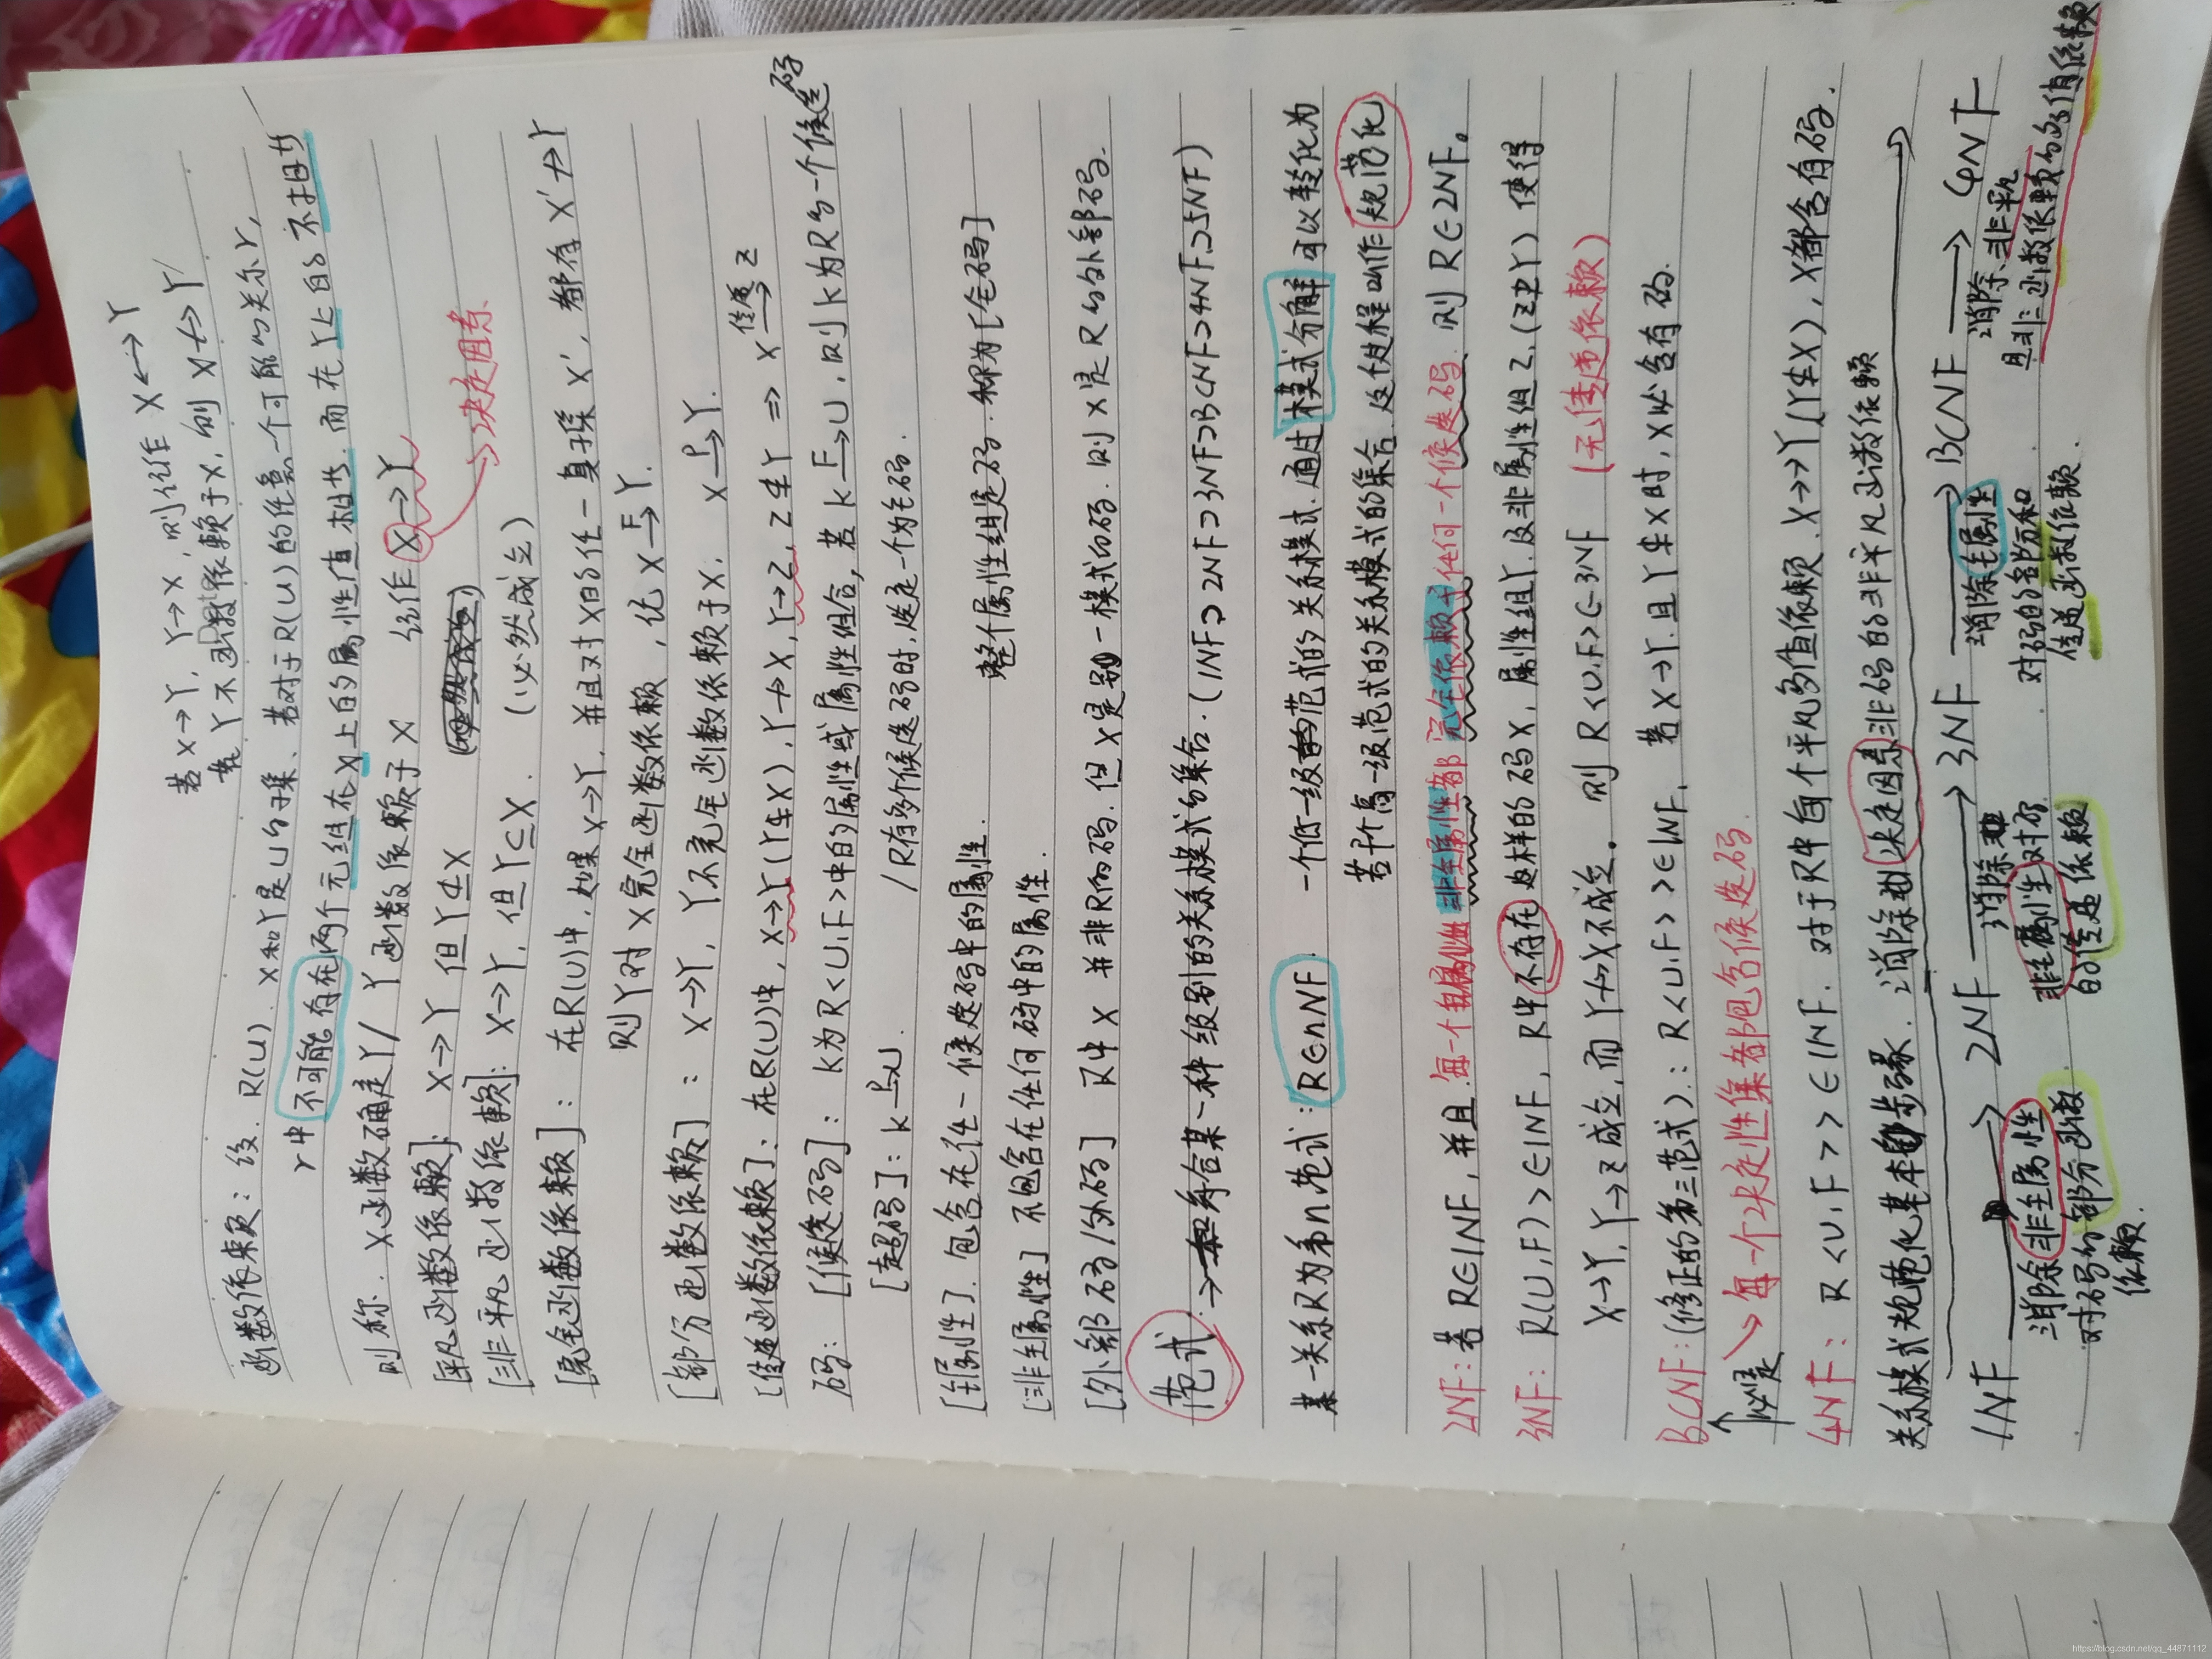 若X→Y, Y→X, 则记作 X↔Y
若Y不函数依赖于X, 则 X↛Y
函数依赖: 设 R(U). X和Y是U的子集、若对于R(U)的任意一个可能的关系r,
r中不可能存在两个元组在X上的属性值相等, 而在Y上的不相等
则称. X函数确定Y / Y函数依赖于X 记作 X→Y
→决定因素
[平凡函数依赖]: X→Y 但Y⊄X
[非平凡函数依赖]: X→Y, 但Y⊆X. (必然成立)
[完全函数依赖]: 在R(U)中, 如果X→Y, 并且对X的任一真子集X', 都有X'↛Y
则Y对X完全函数依赖, 记 X F→Y.
[部分函数依赖]: X→Y, Y不完全函数依赖于X. X P→Y.
[传递函数依赖]: 在R(U)中, X→Y (Y⊄X), Y↛X, Y→Z, Z⊄Y => X 传递→ Z
码: [候选码]: K为R<U.F>中的属性或属性组合, 若K F→U, 则K为R的一个候选码
[超码]: K P→U. /R有多个候选码时, 选定一个为主码.
[主属性]. 包含在任一候选码中的属性. 整个属性组是码. 称为[全码]
[非主属性] 不包含在任何码中的属性.
[外部码/外码] R中X并非R的码. 但X是另一模式的码. 则X是R的外部码.
范式 → 符合某一种级别的关系模式的集合. (1NF⊃2NF⊃3NF⊃BCNF⊃4NF⊃5NF)
某一关系R为第n范式: R∈nNF. 一个低一级范式的关系模式, 通过模式分解可以转化为
若干个高一级范式的关系模式的集合. 这个过程叫作规范化
2NF: 若R∈1NF, 并且每一个非主属性都完全依赖于任何一个候选码. 则R∈2NF。
3NF: R(U,F)>∈1NF, R中不存在这样的码X, 属性组Y及非属性组Z, (Z⊉Y) 使得
X→Y, Y→Z成立, 而Y↛X不成立。 则R<U.F>∈3NF [无传递依赖]
BCNF: (修正的第三范式): R<U.F>>∈1NF. 若X→Y且Y⊄X时, X必含有码.
↑必须是→每一个决定属性集都包含候选码.
4NF: R<U.F>>∈1NF. 对于R中每个平凡多值依赖. X→→Y(Y⊄X), X都含有码.
关系模式规范化基本步骤. 消除决定因素非码的非平凡函数依赖
1NF → 2NF → 3NF → BCNF → 4NF
消除非主属性对码的部分函数依赖.
消除非主属性对码的传递依赖
消除主属性对码的部分和传递函数依赖.
消除非平凡且非函数依赖的多值依赖
https://blog.csdn.net/qq_44871112